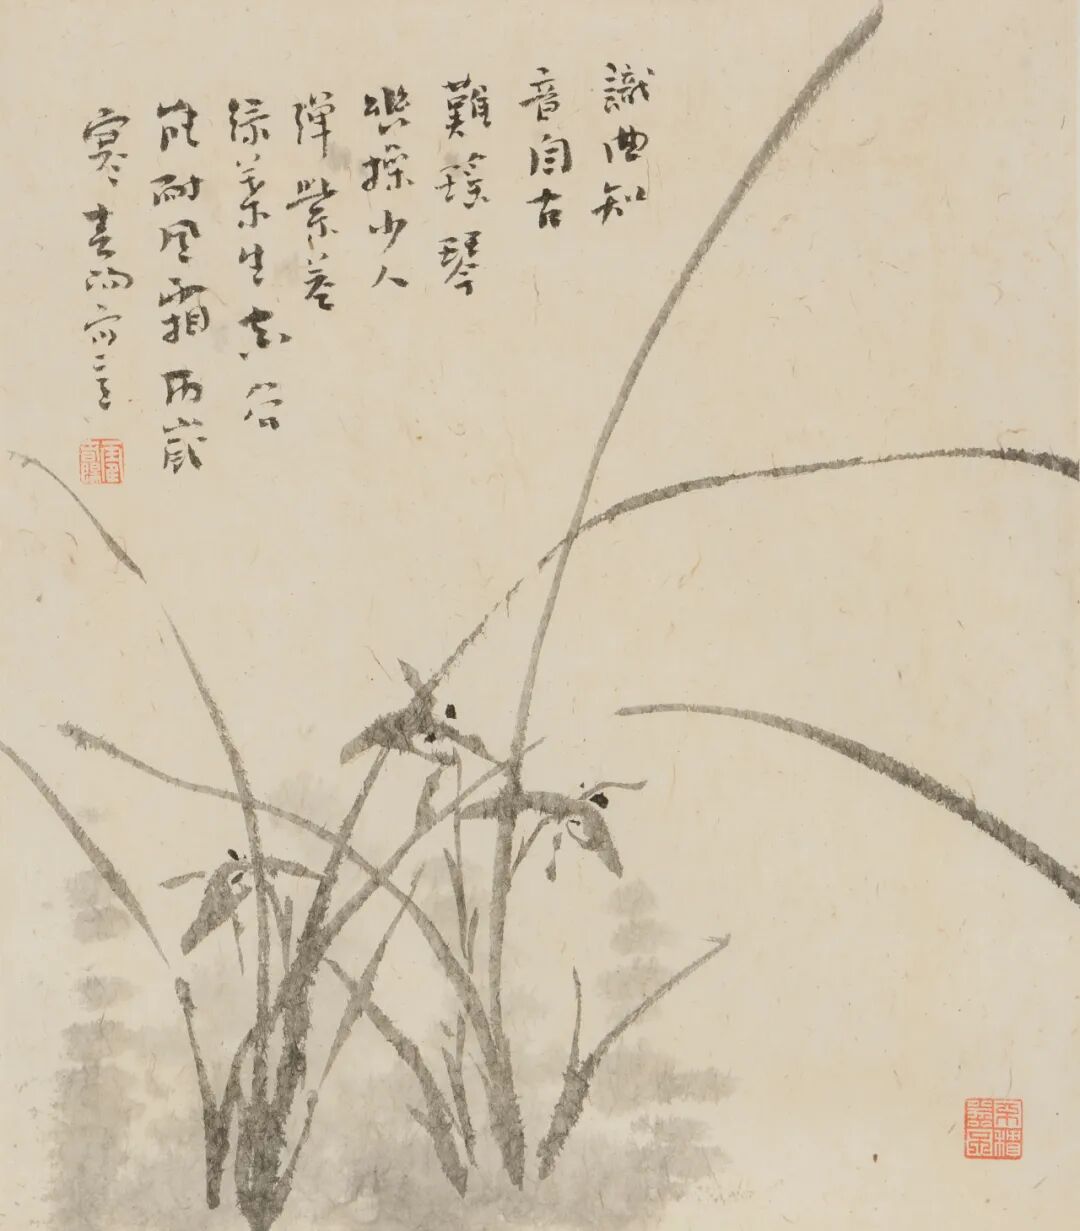 識曲知
音自古
難瑤琴
幽操少人
彈紫莖
綠葉生空谷
能耐風霜 歲
寒